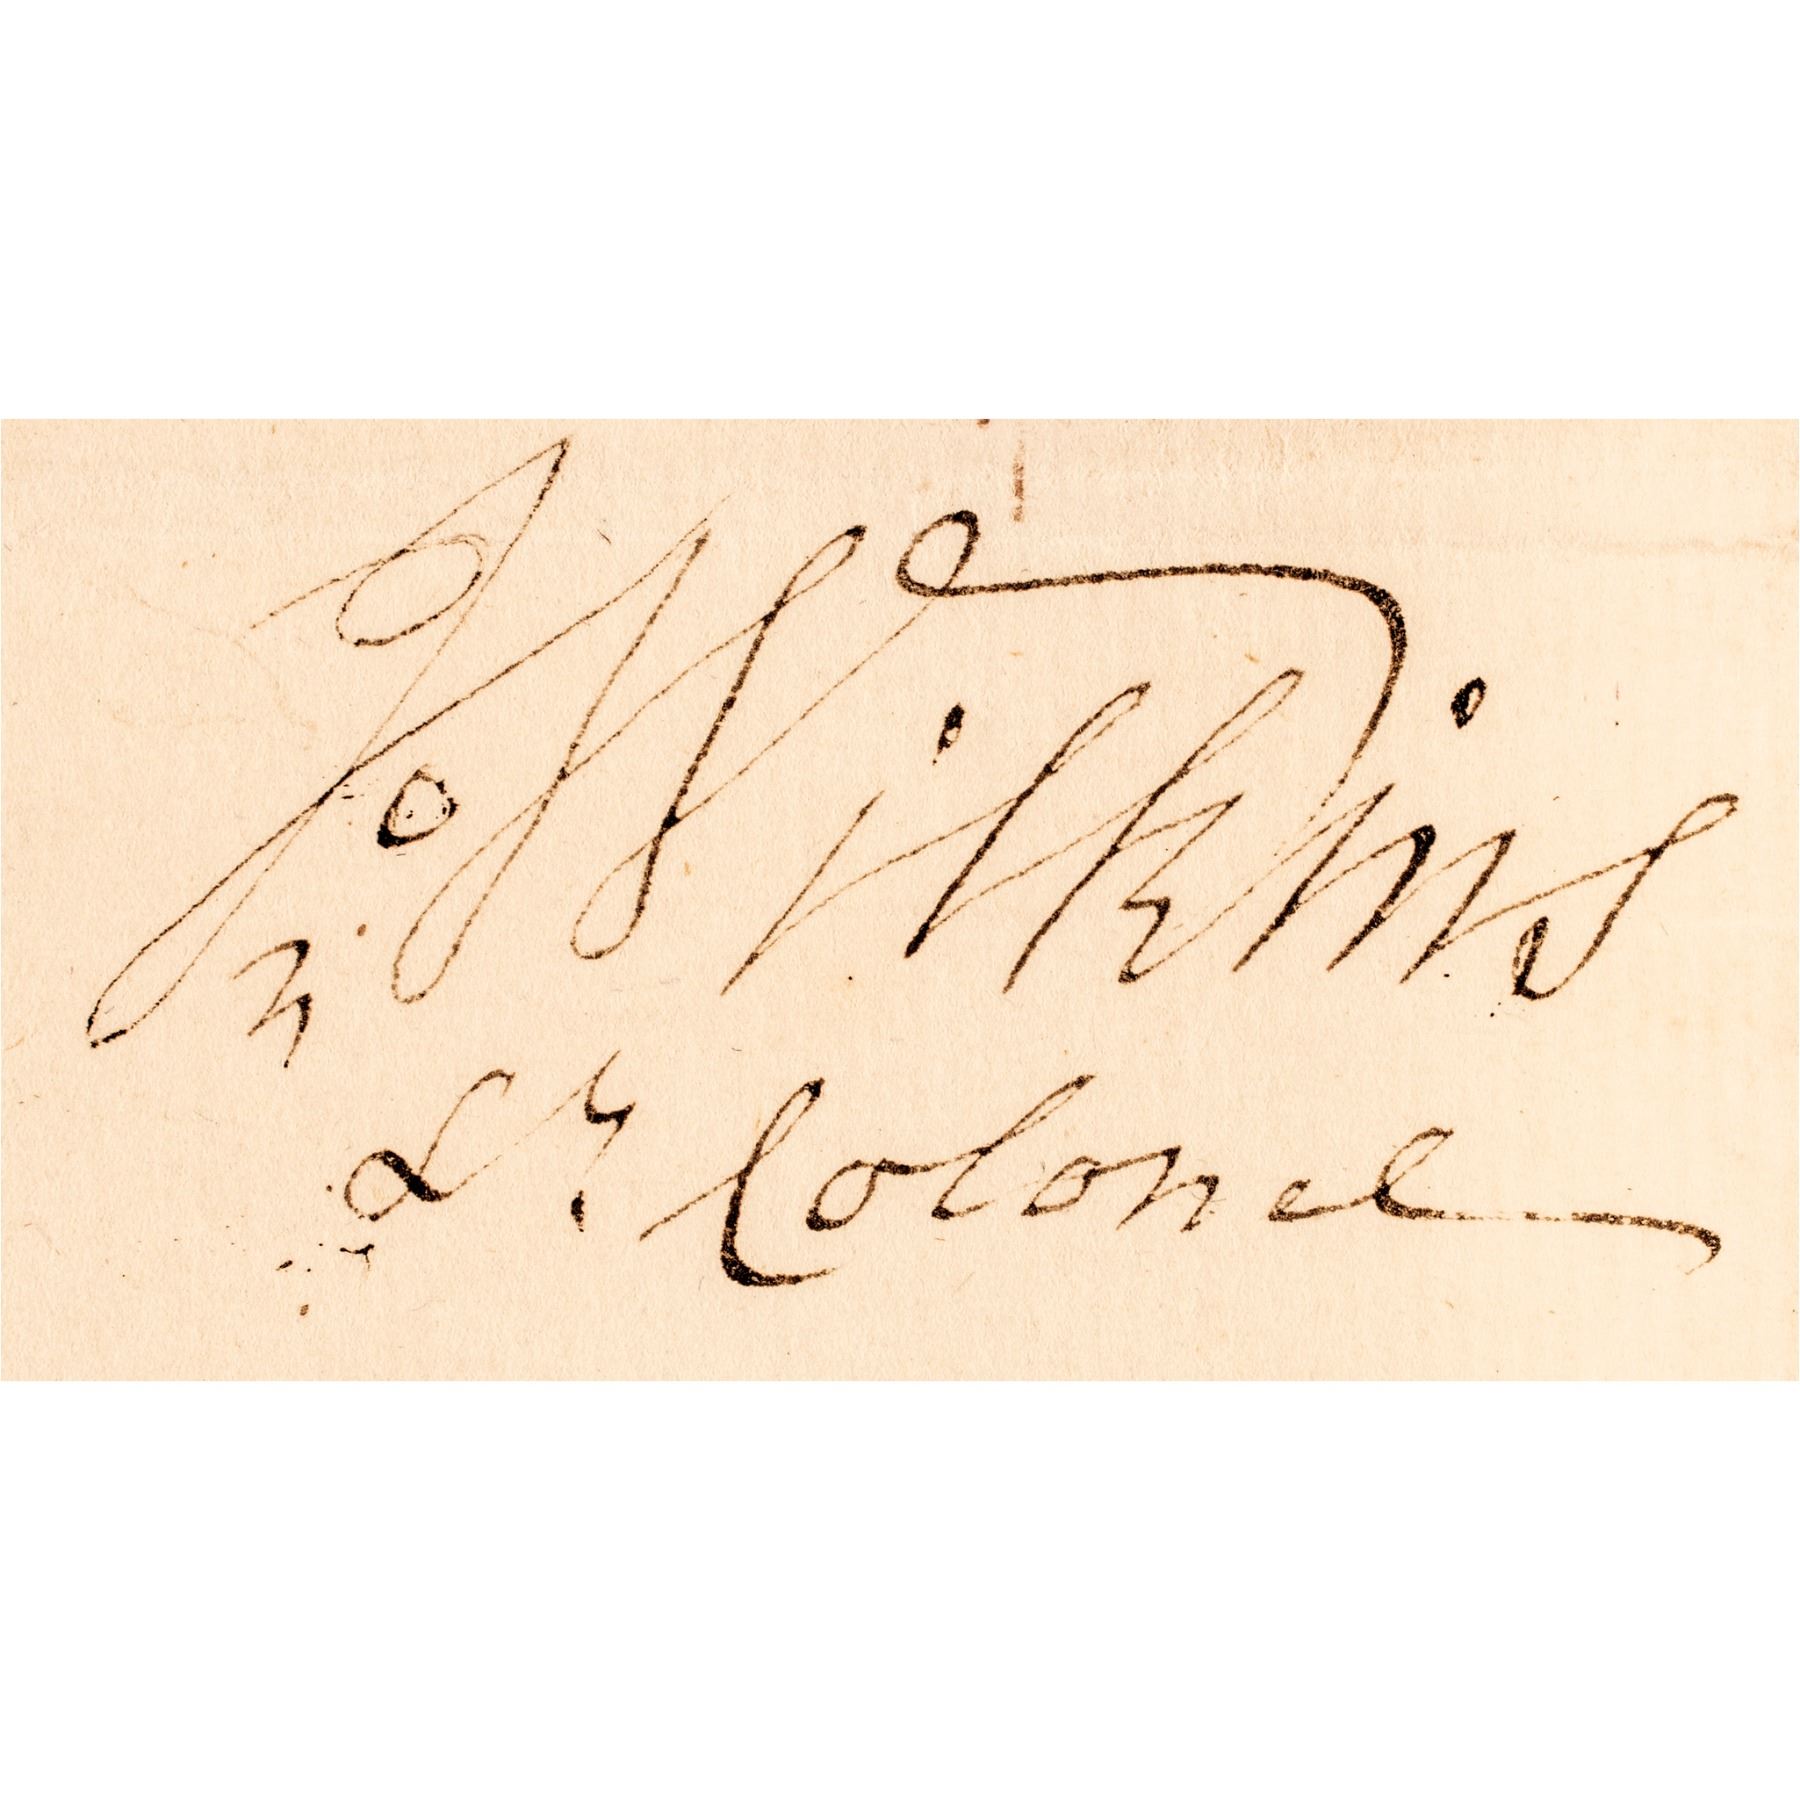 Jno Wilkins
Lt Colonel